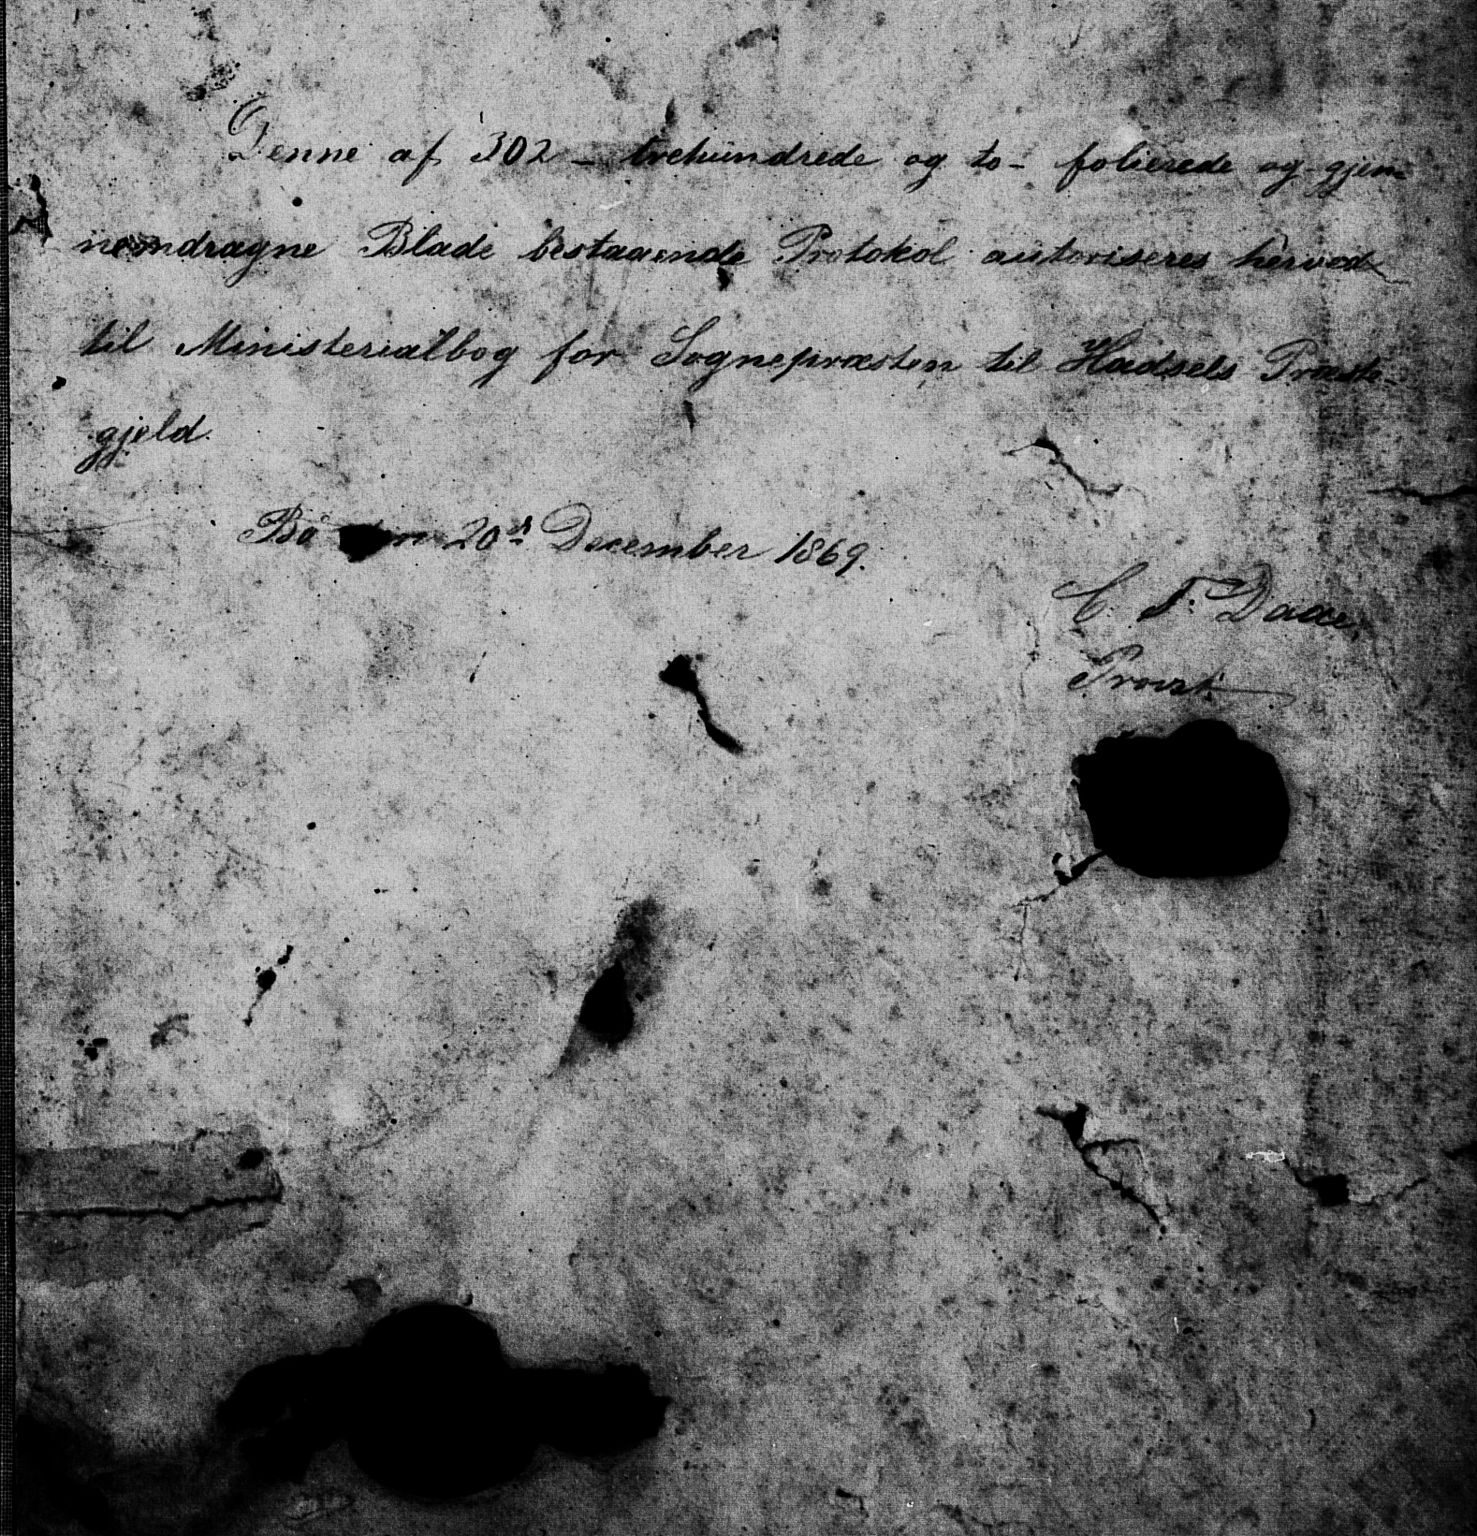 Denne af 302 - trehundrede og to - folierede og gjen-
nemdragne Blade bestaaende Protokol autoriseres herved
til Ministerialbog for Sognepræsten til Hadsels Præste-
gjeld.
Bø den 20de December 1869.
C. F. Daae,
Provst